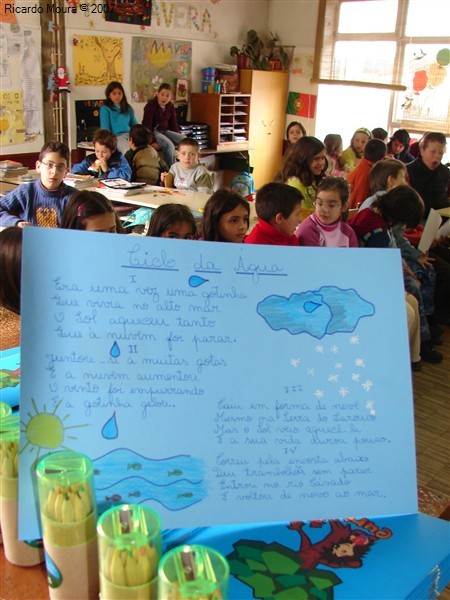 Ricardo Moura © 2007
VERA
Ciclo da Água
I
Era uma vez uma gotinha
Que vivia no alto mar
O Sol aqueceu tanto
Que à nuvem foi parar.
II
Juntou-se a muitas gotas
E a nuvem aumentou
O vento foi empurrando
E a gotinha gelou.
III
Caiu em forma de neve
Mesmo na Serra do Larouco
Mas o Sol veio aquecê-la
E a sua vida durou pouco.
IV
Correu pela encosta abaixo
Deu trambolhões sem parar
Entrou no rio Cávado
E voltou de novo ao mar.